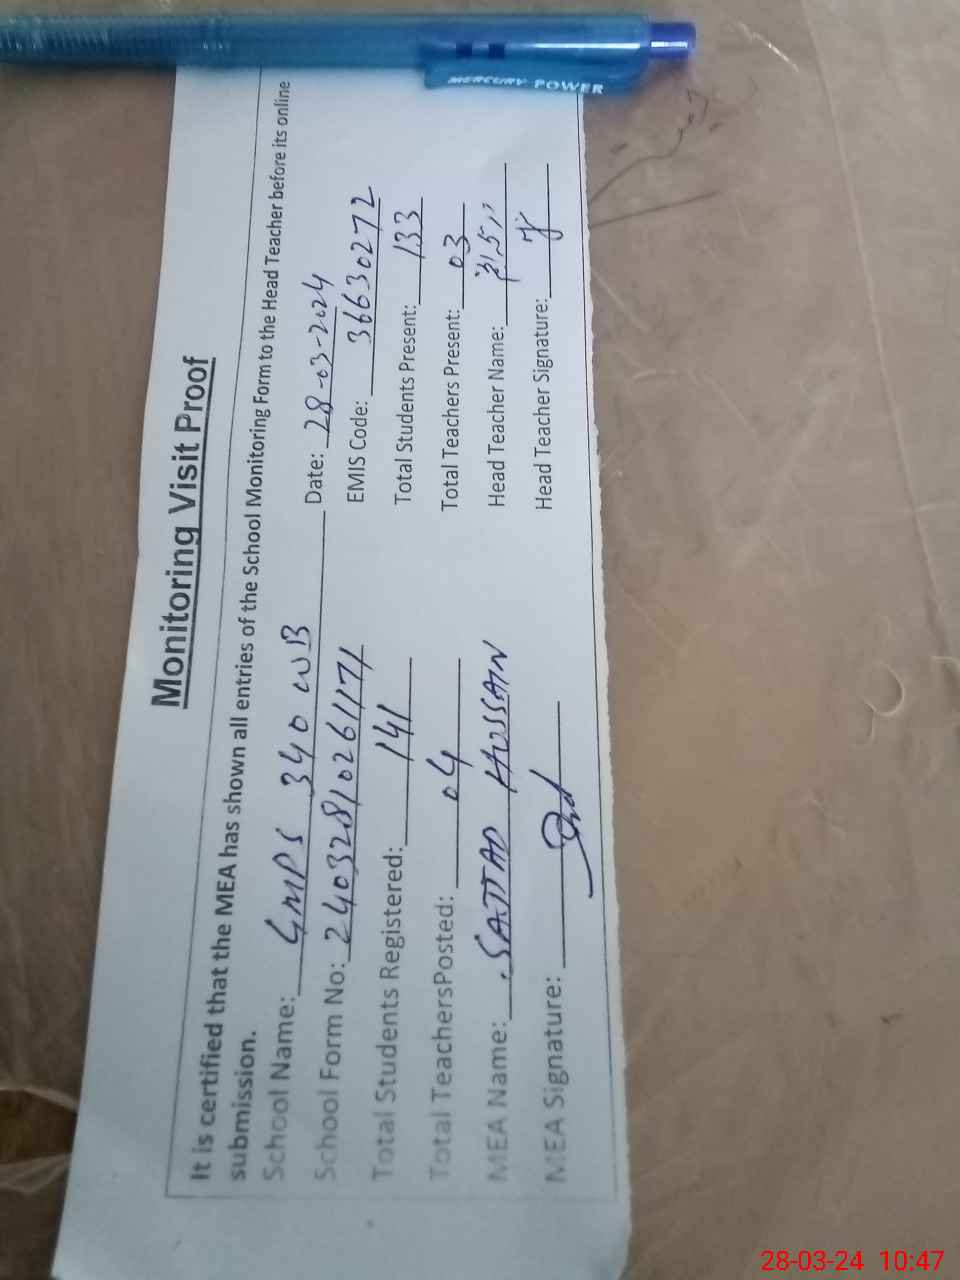 MERCURY POWER
Monitoring Visit Proof
It is certified that the MEA has shown all entries of the School Monitoring Form to the Head Teacher before its online
submission.
School Name: GMPS 340 WB Date: 28-03-2024
School Form No: 24032810261171 EMIS Code: 36630272
Total Students Registered: 141 Total Students Present: 133
Total TeachersPosted: 04 Total Teachers Present: 03
MEA Name: SAJJAD HUSSAIN Head Teacher Name:
MEA Signature: Head Teacher Signature:
28-03-24 10:47